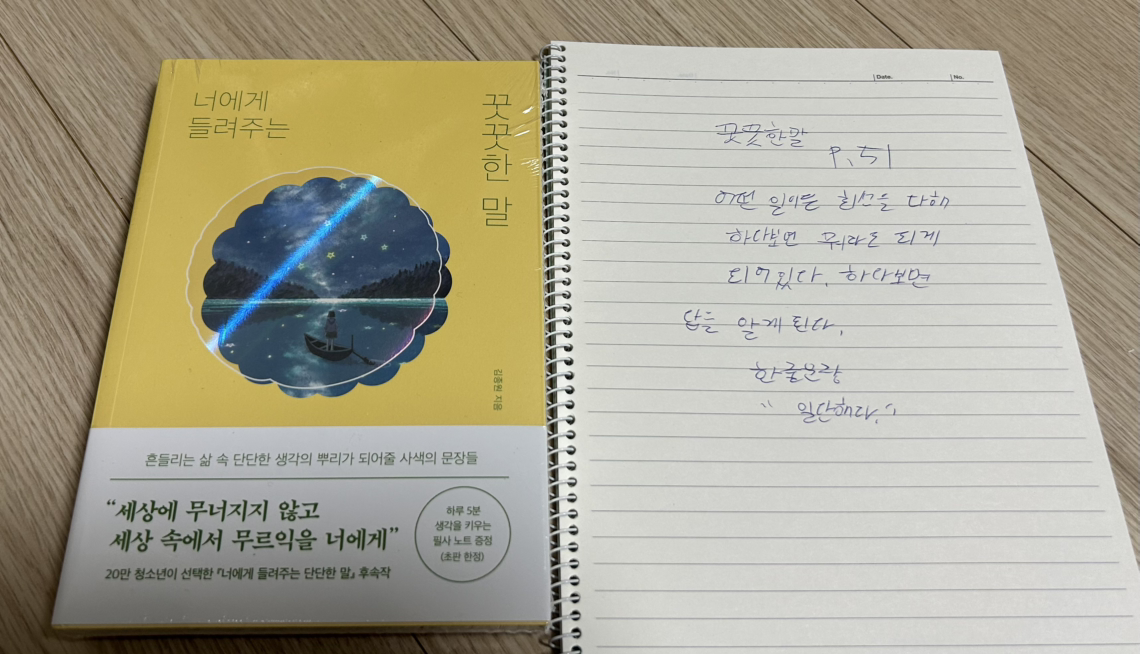 너에게
들려주는
꿋꿋한 말
김종원 지음
흔들리는 삶 속 단단한 생각의 뿌리가 되어줄 사색의 문장들
“세상에 무너지지 않고
세상 속에서 무르익을 너에게”
20만 청소년이 선택한 『너에게 들려주는 단단한 말』 후속작
하루 5분
생각을 키우는
필사 노트 증정
(초판 한정)
Date.
No.
꿋꿋한말
P. 51
어떤 일이든 최선을 다해
하다보면 뭐라도 되게
되어있다. 하다보면
답을 알게 된다.
한줄문장
“ 일단해다. ”